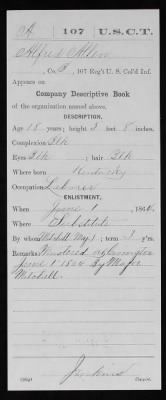 A | 107 | U.S.C.T.
Alfred Allen
, Co. B, 107 Reg't U. S. Col'd Inf.
Appears on
Company Descriptive Book
of the organization named above.
DESCRIPTION.
Age 18 years; height 5 feet 8 inches.
Complexion Blk
Eyes Blk ; hair Blk
Where born Kentucky
Occupation Laborer
ENLISTMENT.
When June 1, 1864.
Where
Substitute
By whom Mitchell Maj. ; term 3 y'rs.
Remarks: Mustered
June 1 1864 By Major
Mitchell
Copyist.